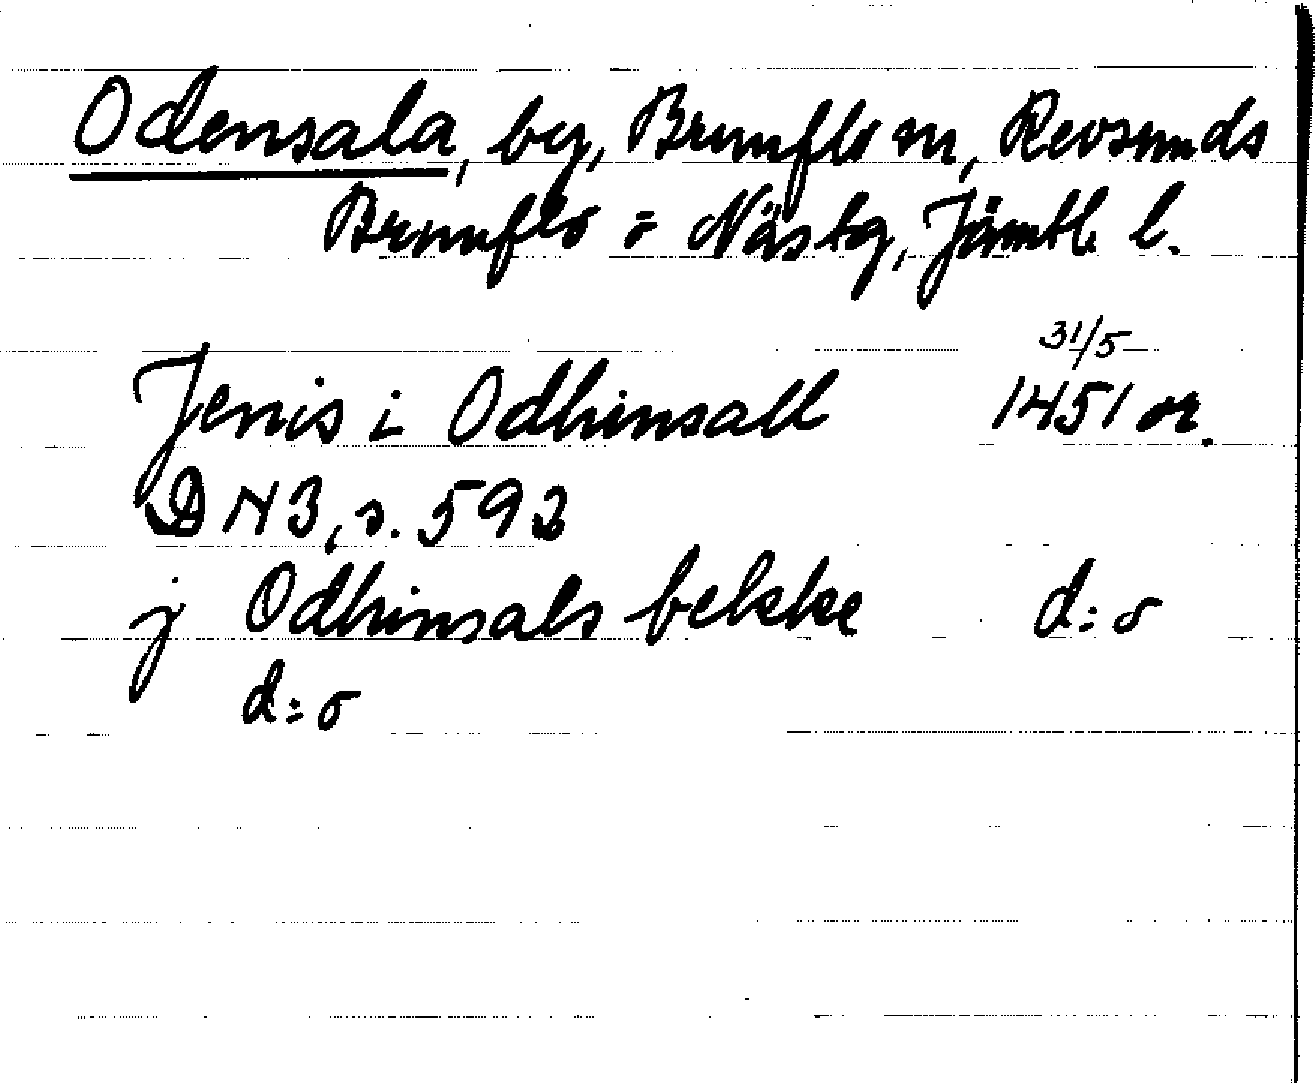 Odensala, by, Brunflo sn, Revsunds
Brunflo o Näs tg, Jämtl. l.
31/5
Jenis i Odhinsall 1451 or.
DN3, s. 592
j Odhinsals bekke d:o
d:o